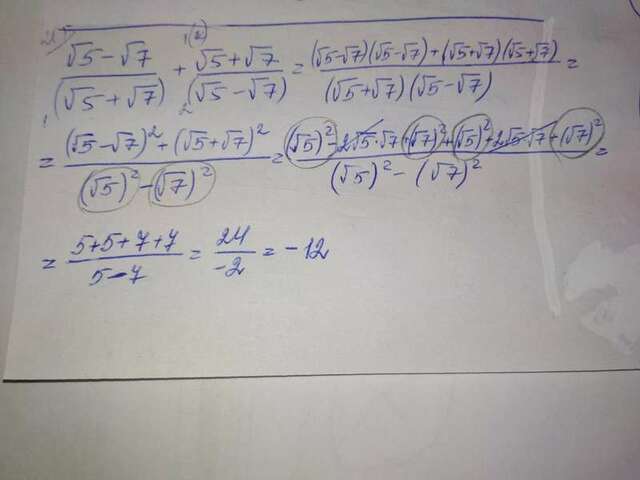 (√5 − √7)/(√5 + √7) + (√5 + √7)/(√5 − √7) = ((√5−√7)(√5−√7) + (√5+√7)(√5+√7))/((√5+√7)(√5−√7)) =
= ((√5−√7)² + (√5+√7)²)/((√5)² − (√7)²) = ((√5)² − 2√5·√7 + (√7)² + (√5)² + 2√5·√7 + (√7)²)/((√5)² − (√7)²) =
= (5+5+7+7)/(5−7) = 24/−2 = −12